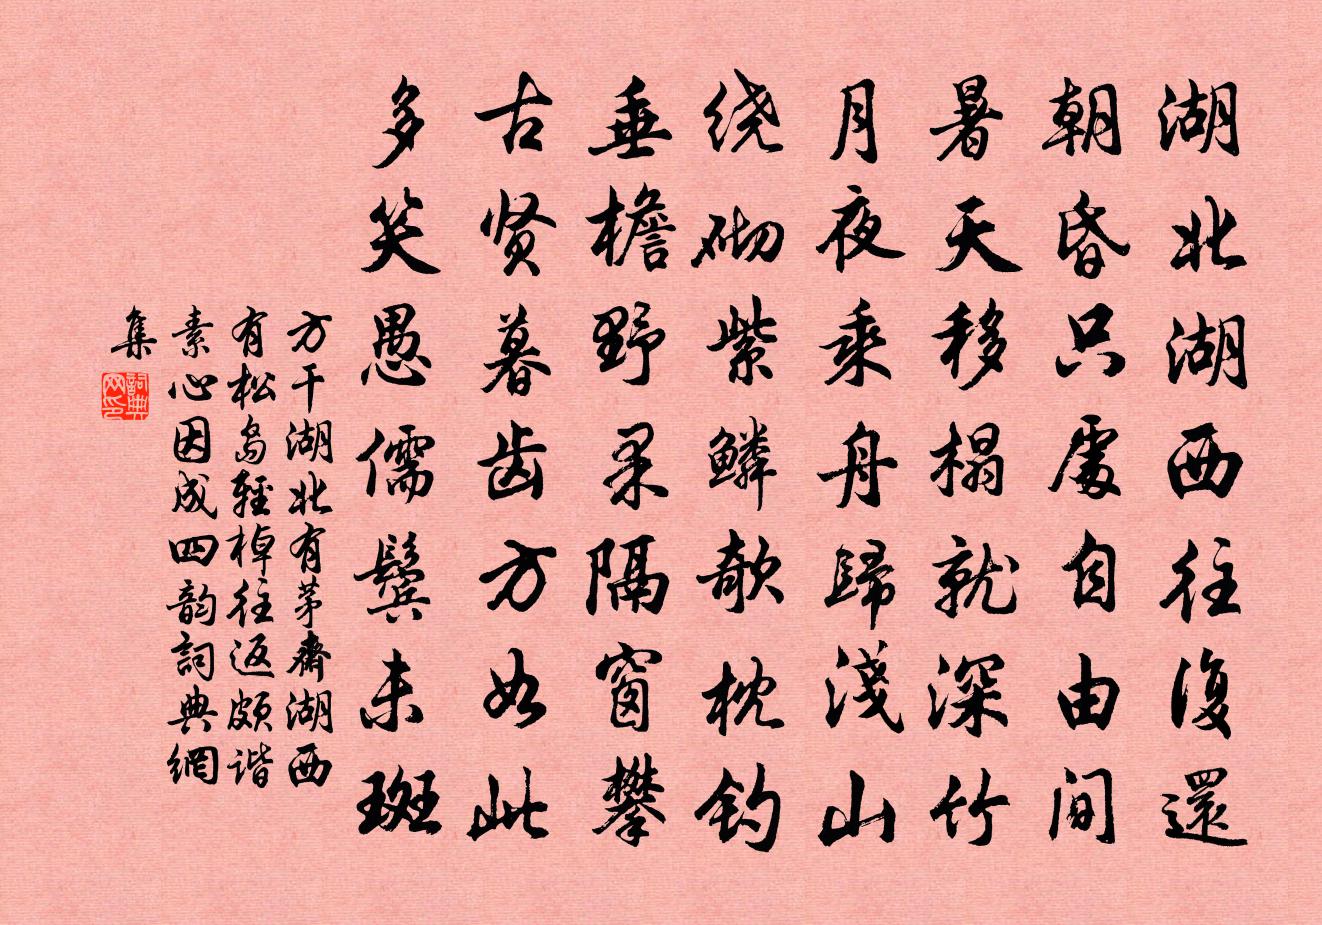 湖北湖西往復還
朝昏只處自由間
暑天移榻就深竹
月夜乘舟歸淺山
绕砌紫鳞欹枕钓
垂檐野果隔窗攀
古贤暮齿方如此
多笑愚儒鬓未斑
方干湖北有茅齋湖西
有松岛轻棹往返颇谐
素心因成四韵詞典網
集
詞典網印